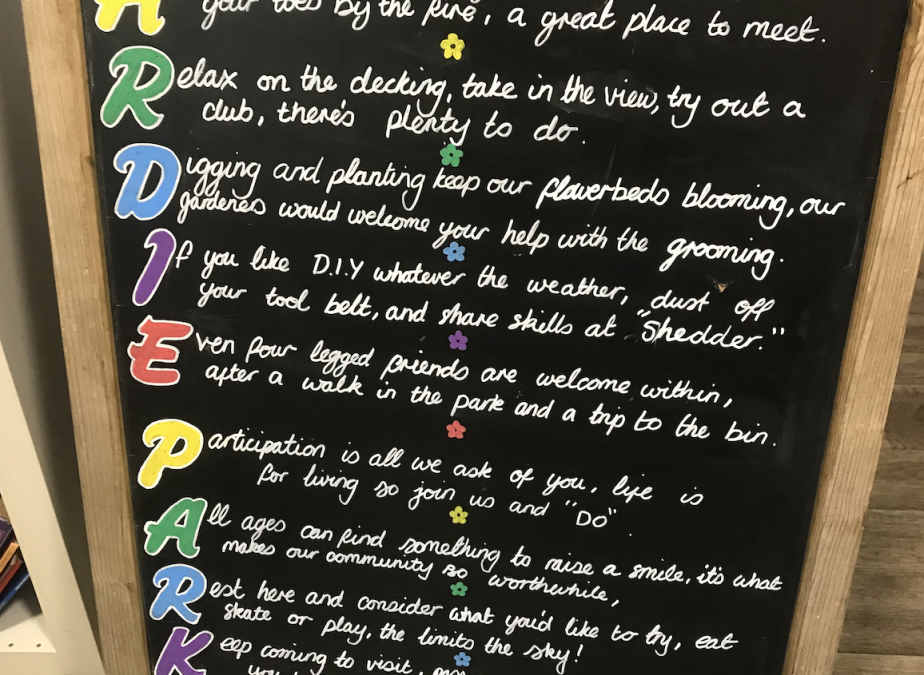 your toes by the fire, a great place to meet.
Relax on the decking, take in the view, try out a
club, there's plenty to do.
Digging and planting keep our flowerbeds blooming, our
gardenes would welcome your help with the grooming.
If you like D.I.Y whatever the weather, dust off
your tool belt, and share skills at "Shedder."
Even four legged friends are welcome within,
after a walk in the park and a trip to the bin.
Participation is all we ask of you, life is
for living so join us and "Do"
All ages can find something to raise a smile, it's what
makes our community so worthwhile,
Rest here and consider what you'd like to try, eat
skate or play, the limits the sky!
Keep coming to visit,